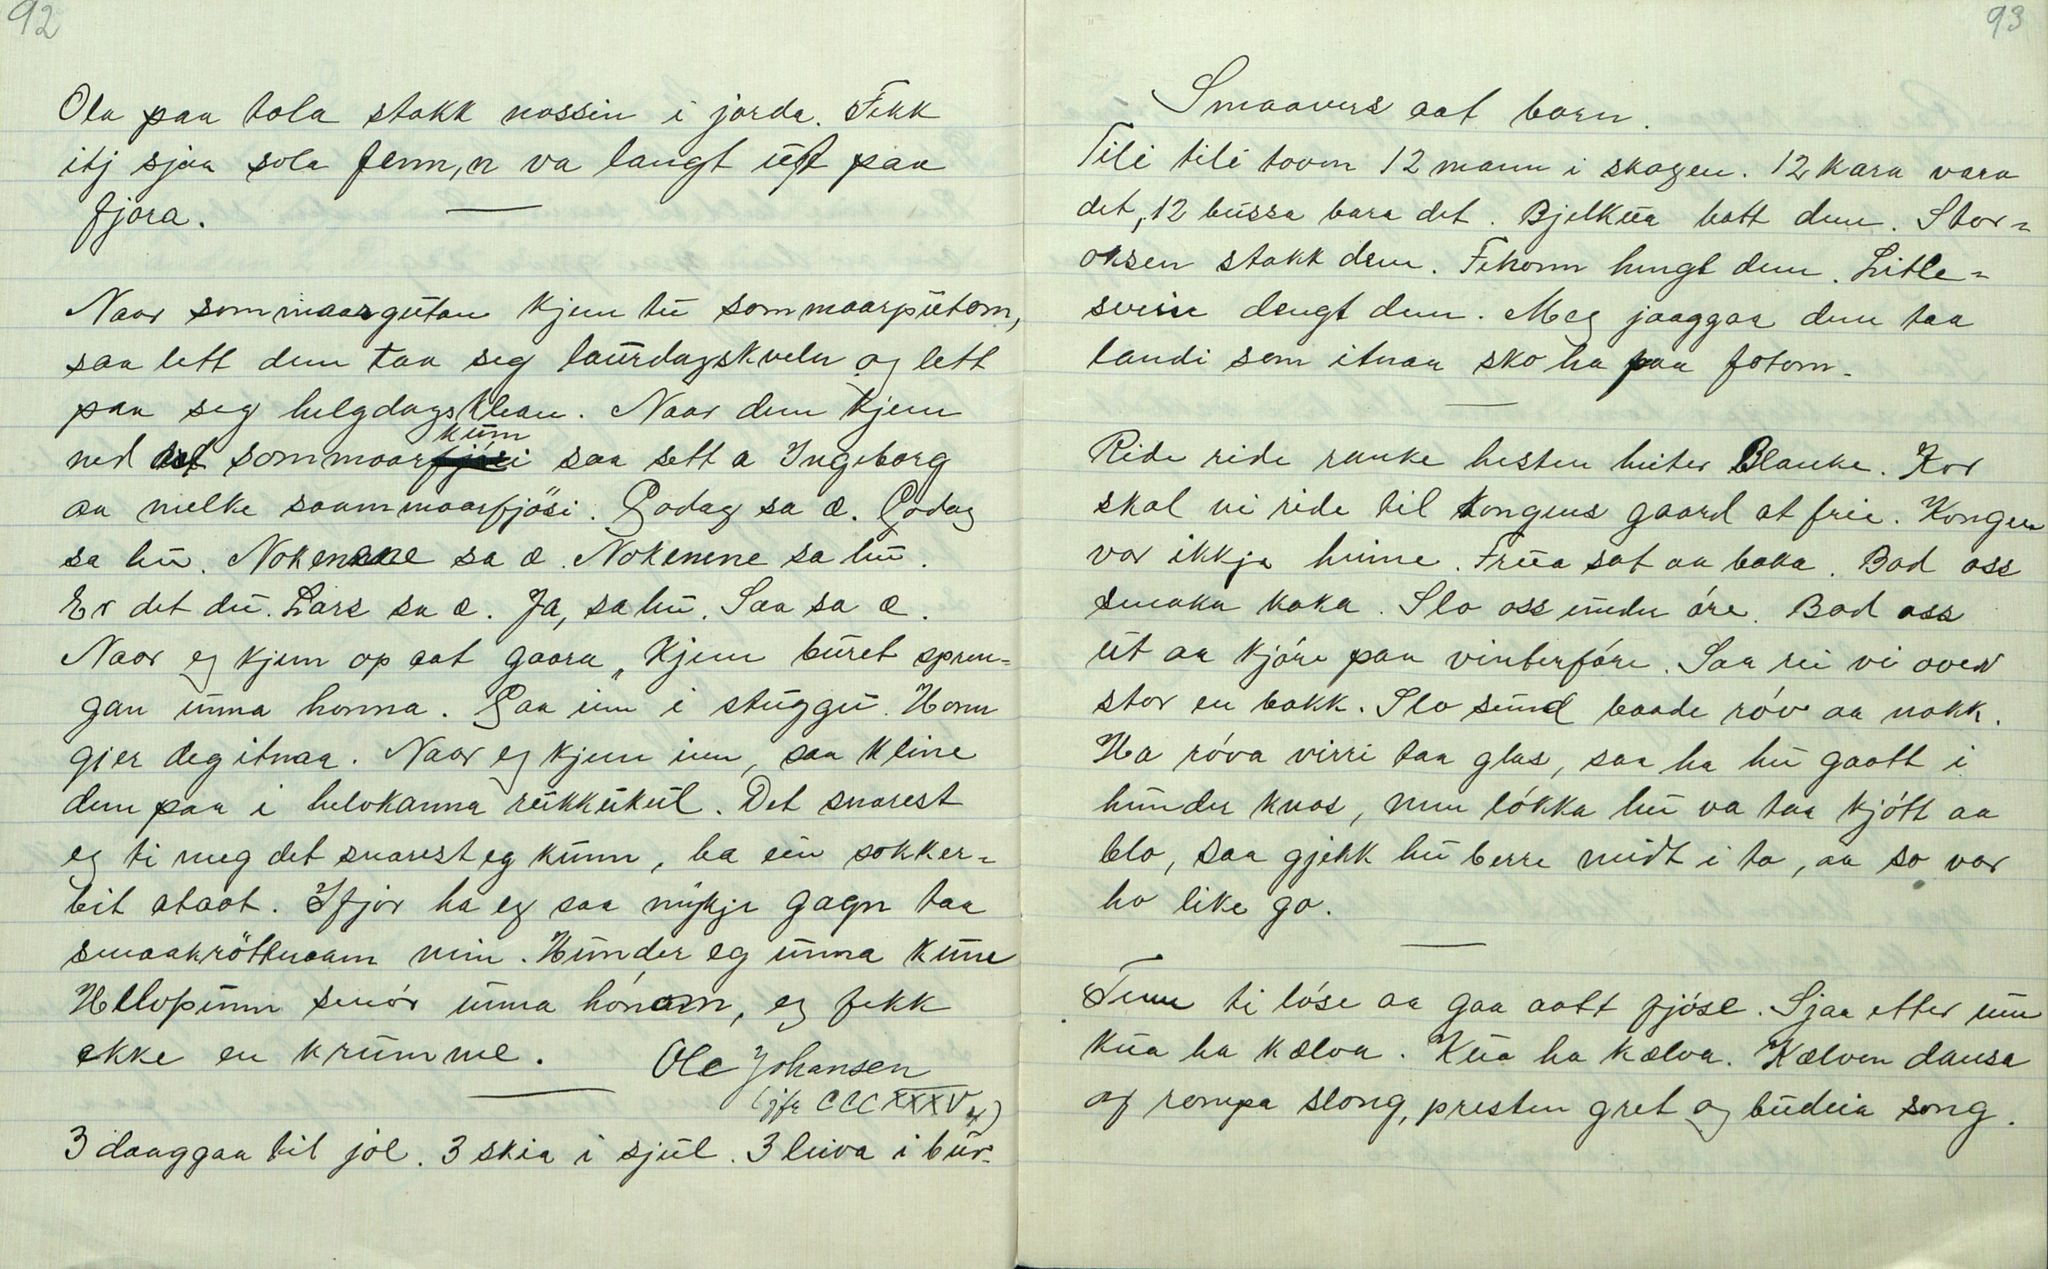 92
Ola paa tola stakk nossin i jorda. Fekk
itj sjaa sola fenn, n va langt ut paa
fjøra.
Naar sommaargutan kjem tu sommaarputom,
saa lett dem taa seg laurdagskveln og lett
paa seg helgdagsklean. Naar dem kjem
ned at sommaarkum saa sett a Ingeborg
aa melke saammaarfjösi. Godag sa æ. Godag
sa hu. Nokenene sa æ. Nokenene sa hu.
Er det du Lars sa æ. Ja, sa hu. Saa sa æ.
Naar eg kjem op aat gaara, kjem buret spren-
gan unna honna. Gaa inn i stuggu. Honn
gjer deg itnaa. Naar eg kjem inn, saa kline
dem paa i helokanna rukkukul. Det snarest
eg ti meg det snarest eg kunn, ba ein sokker-
bit ataat. Ifjor ha eg saa mykje gagn taa
smaakröttnaam min. Hunder eg unna kune
Hellopunn smór unna hónom, eg fekk
ekke en krumme.
Ole Johansen
(jfr CCCXXXV 4)
3 daaggaa til jol. 3 skia i sjul. 3 leiva i bur.
93
Smaavers aat barn.
Tili tili tovm 12 mann i skogen. 12 kara vara
det, 12 bussa bara det. Bjelkua batt dem. Stor-
oksen stakk dem. Fekonn hengt dem. Litle-
svein dengt dem. Meg jaaggaa dem taa
landi som itnaa sko ha paa fotom.
Ride ride ranke hesten heiter Blanke. Kor
skal vi ride til kongens gaard at frie. Kongen
var ikkja heime. Frua sat aa baka. Bad oss
smaka kaka. Slo oss under óre. Bad oss
ut aa kjóre paa vinterfóre. Saa rei vi over
stor en bakk. Slo sund baade róv aa nakk.
Ha róva virri taa glas, saa ha hu gaatt i
hunder knas, men lókka hu va taa kjótt aa
blo, saa gjekk hu berre midt i to, aa so var
ho like go.
Tenn ti lóse aa gaa aatt fjóse. Sjaa etter um
kua ha kælva. Kua ha kælva. Kælven dansa
og rompa slong, presten gret og budeia song.